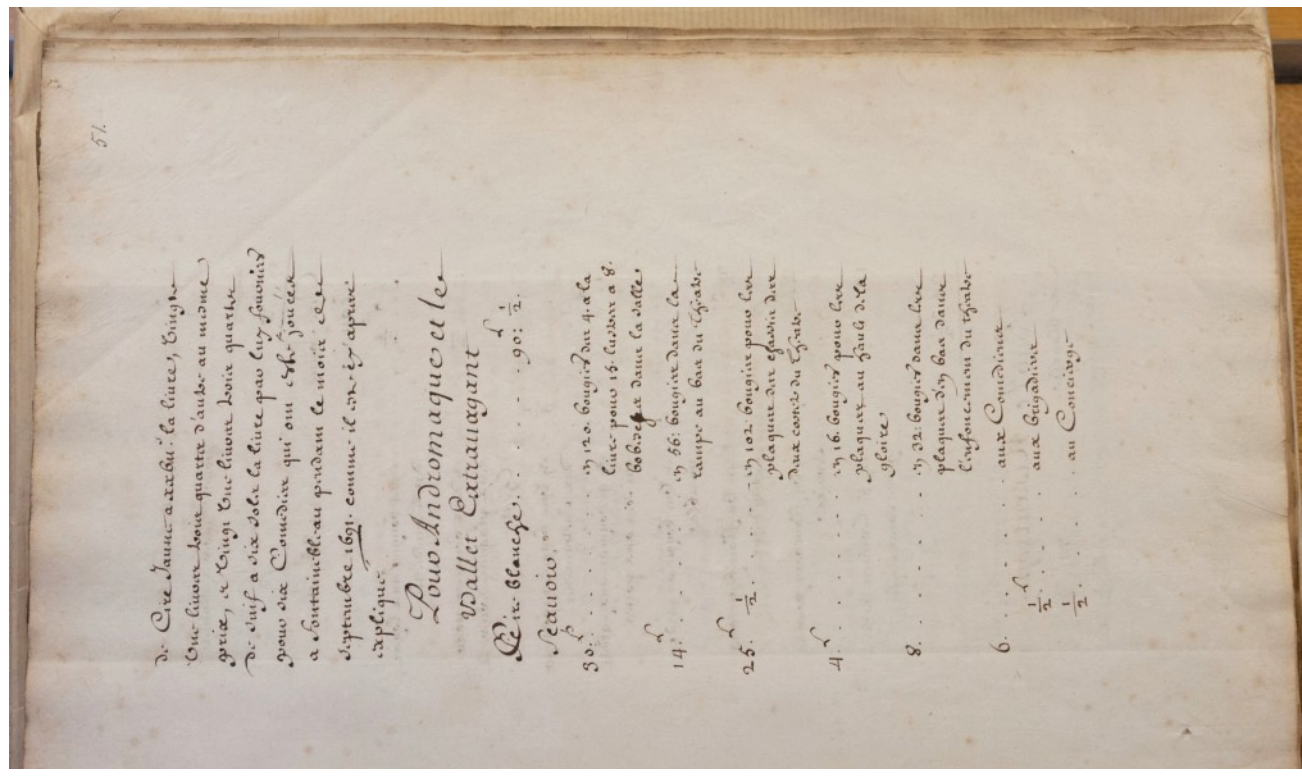 51.
de Cire Jaune a xxbii la livre, vingt
une livres trois quartz d'autre au mesme
prix, et vingt une livres trois quartz
de suif a six sols la livre par luy fournies
pour six Comedies qui ont esté jouées
a fontainebleau pendant le mois de
Septembre 1691. comme il en es aprés
expliqué
Pour Andromaque et le
Vallet Extravagant
Cire blanche . . . . . 90: 1/2.
Scavoir.
30: . . . . en 120. bougies des 4. a la
livre pour 15. lustres a 8.
bobesches dans la salle
14: . . . . en 56: bougies dans la
rampe au bas du theatre
25. 1/2. . . . en 102. bougies pour les
plaques des chassis des
deux costez du theatre
4. . . . . en 16. bougies pour les
plaques au hault de la
gloire
8. . . . . en 32: bougies dans les
plaques d'en bas dans
l'enfoncement du theatre
6. . . . . aux Comediens
1/2 . . . . aux brigadiers
1/2 . . . . au Concierge